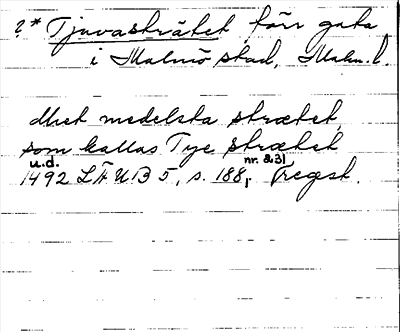 ?* Tjuvasträtet, förr gata
i Malmö stad, Malm. l.
thet medelsta strætet,
som kallas Tyve strætet
u.d. nr. 831
1492 LÄUB 5, s. 188, regest.